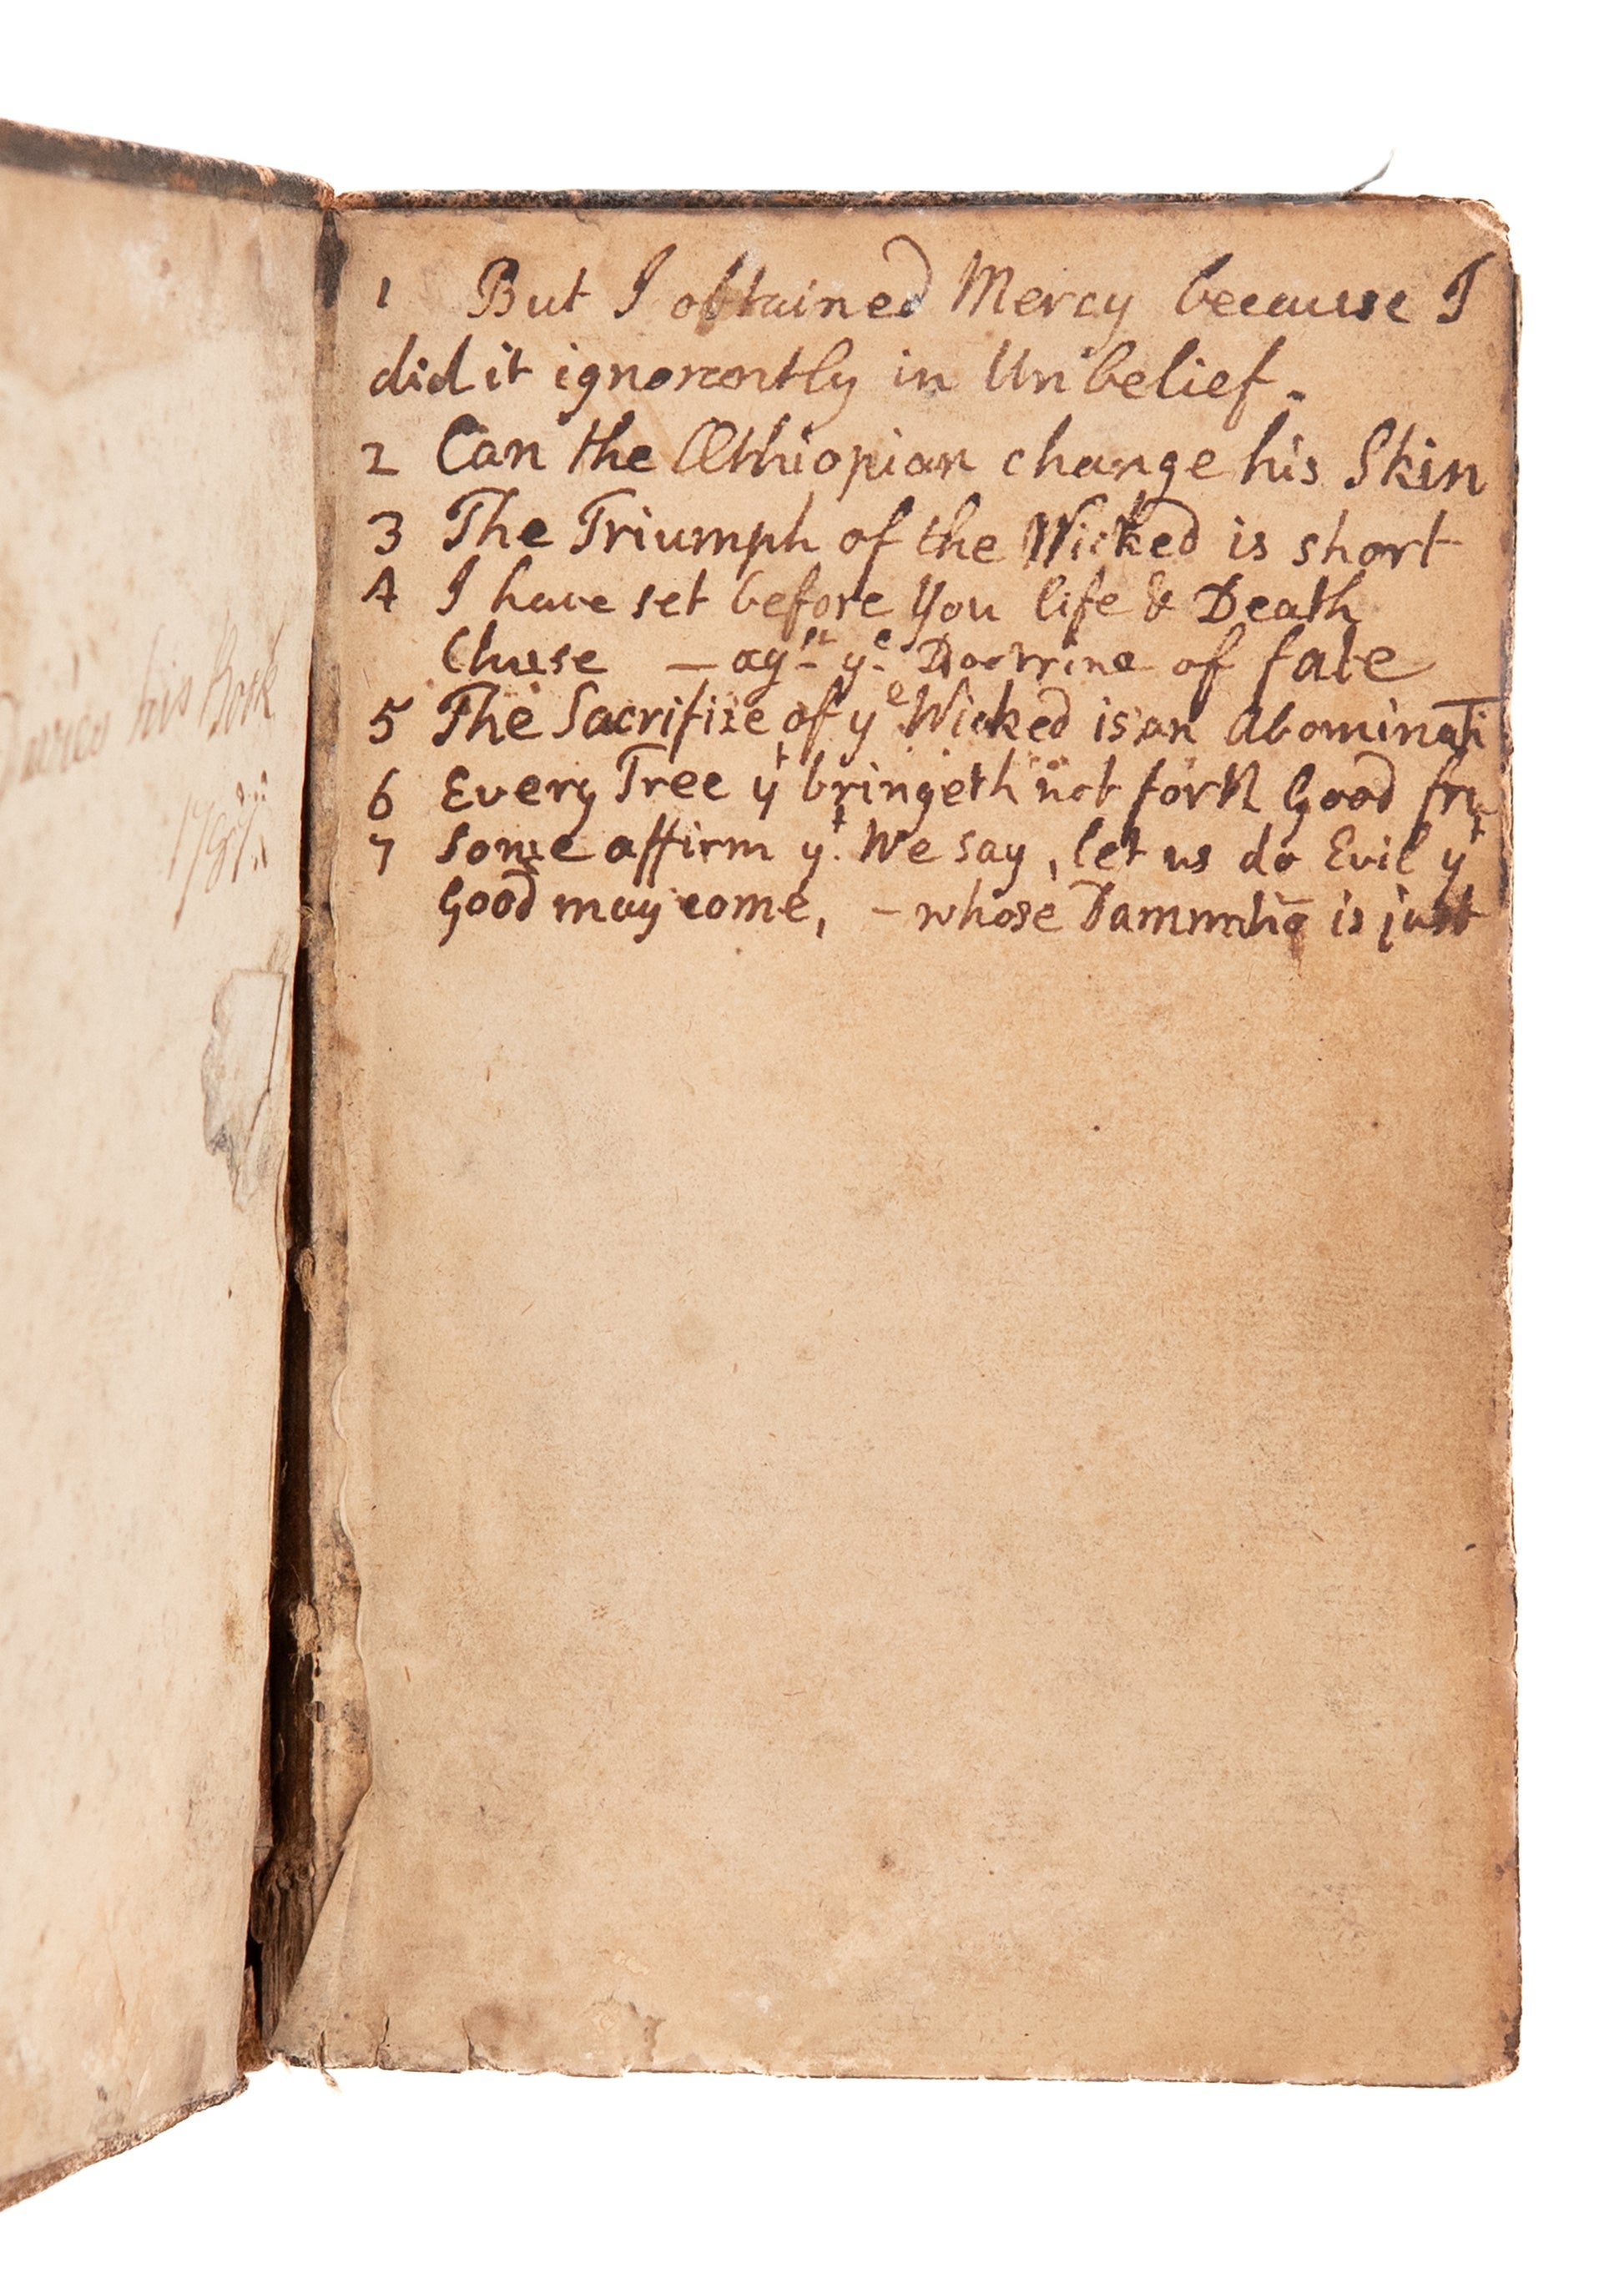 his Book
1 But I obtained Mercy because I
did it ignorently in Unbelief.
2 Can the Æthiopian change his Skin
3 The Triumph of the Wicked is short
4 I have set before You life & Death
Chuse — agst ye Doctrine of fate
5 The Sacrifize of ye Wicked is an Abominati
6 Every Tree yt bringeth not forth Good fru
7 Some affirm yt We say, let us do Evil yt
Good may come, – whose is just